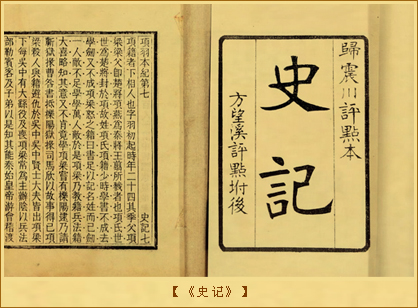 歸震川評點本
史記
方望溪評點坿後
項羽本紀第七 史記七
項籍者下相人也字羽初起時年二十四其季父項
梁梁父即楚將項燕爲秦將王翦所戮者也項氏世
世爲楚將封於項故姓項氏項籍少時學書不成去
學劍又不成項梁怒之籍曰書足以記名姓而已劍
一人敵不足學學萬人敵於是項梁乃教籍兵法籍
大喜略知其意又不肯竟學項梁嘗有櫟陽逮乃請
蘄獄掾曹咎書抵櫟陽獄掾司馬欣以故事得已項
梁殺人與籍避仇於吳中吳中賢士大夫皆出項梁
下每吳中有大繇役及喪項梁常爲主辦陰以兵法
部勒賓客及子弟以是知其能秦始皇帝游會稽渡
【《史记》】